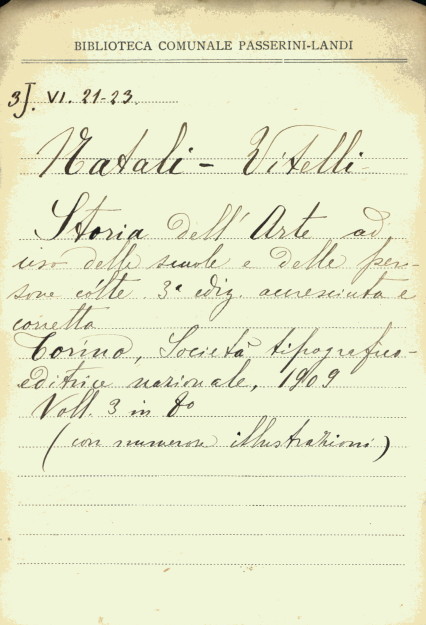 BIBLIOTECA COMUNALE PASSERINI-LANDI
3J. VI. 21-23.
Natali - Vitelli
Storia dell' Arte ad
uso delle scuole e delle per-
sone cólte. 3ª ediz. accresciuta e
corretta
Torino, Società tipografico-
editrice nazionale, 1909
Voll. 3 in 8º
(con numerose illustrazioni)